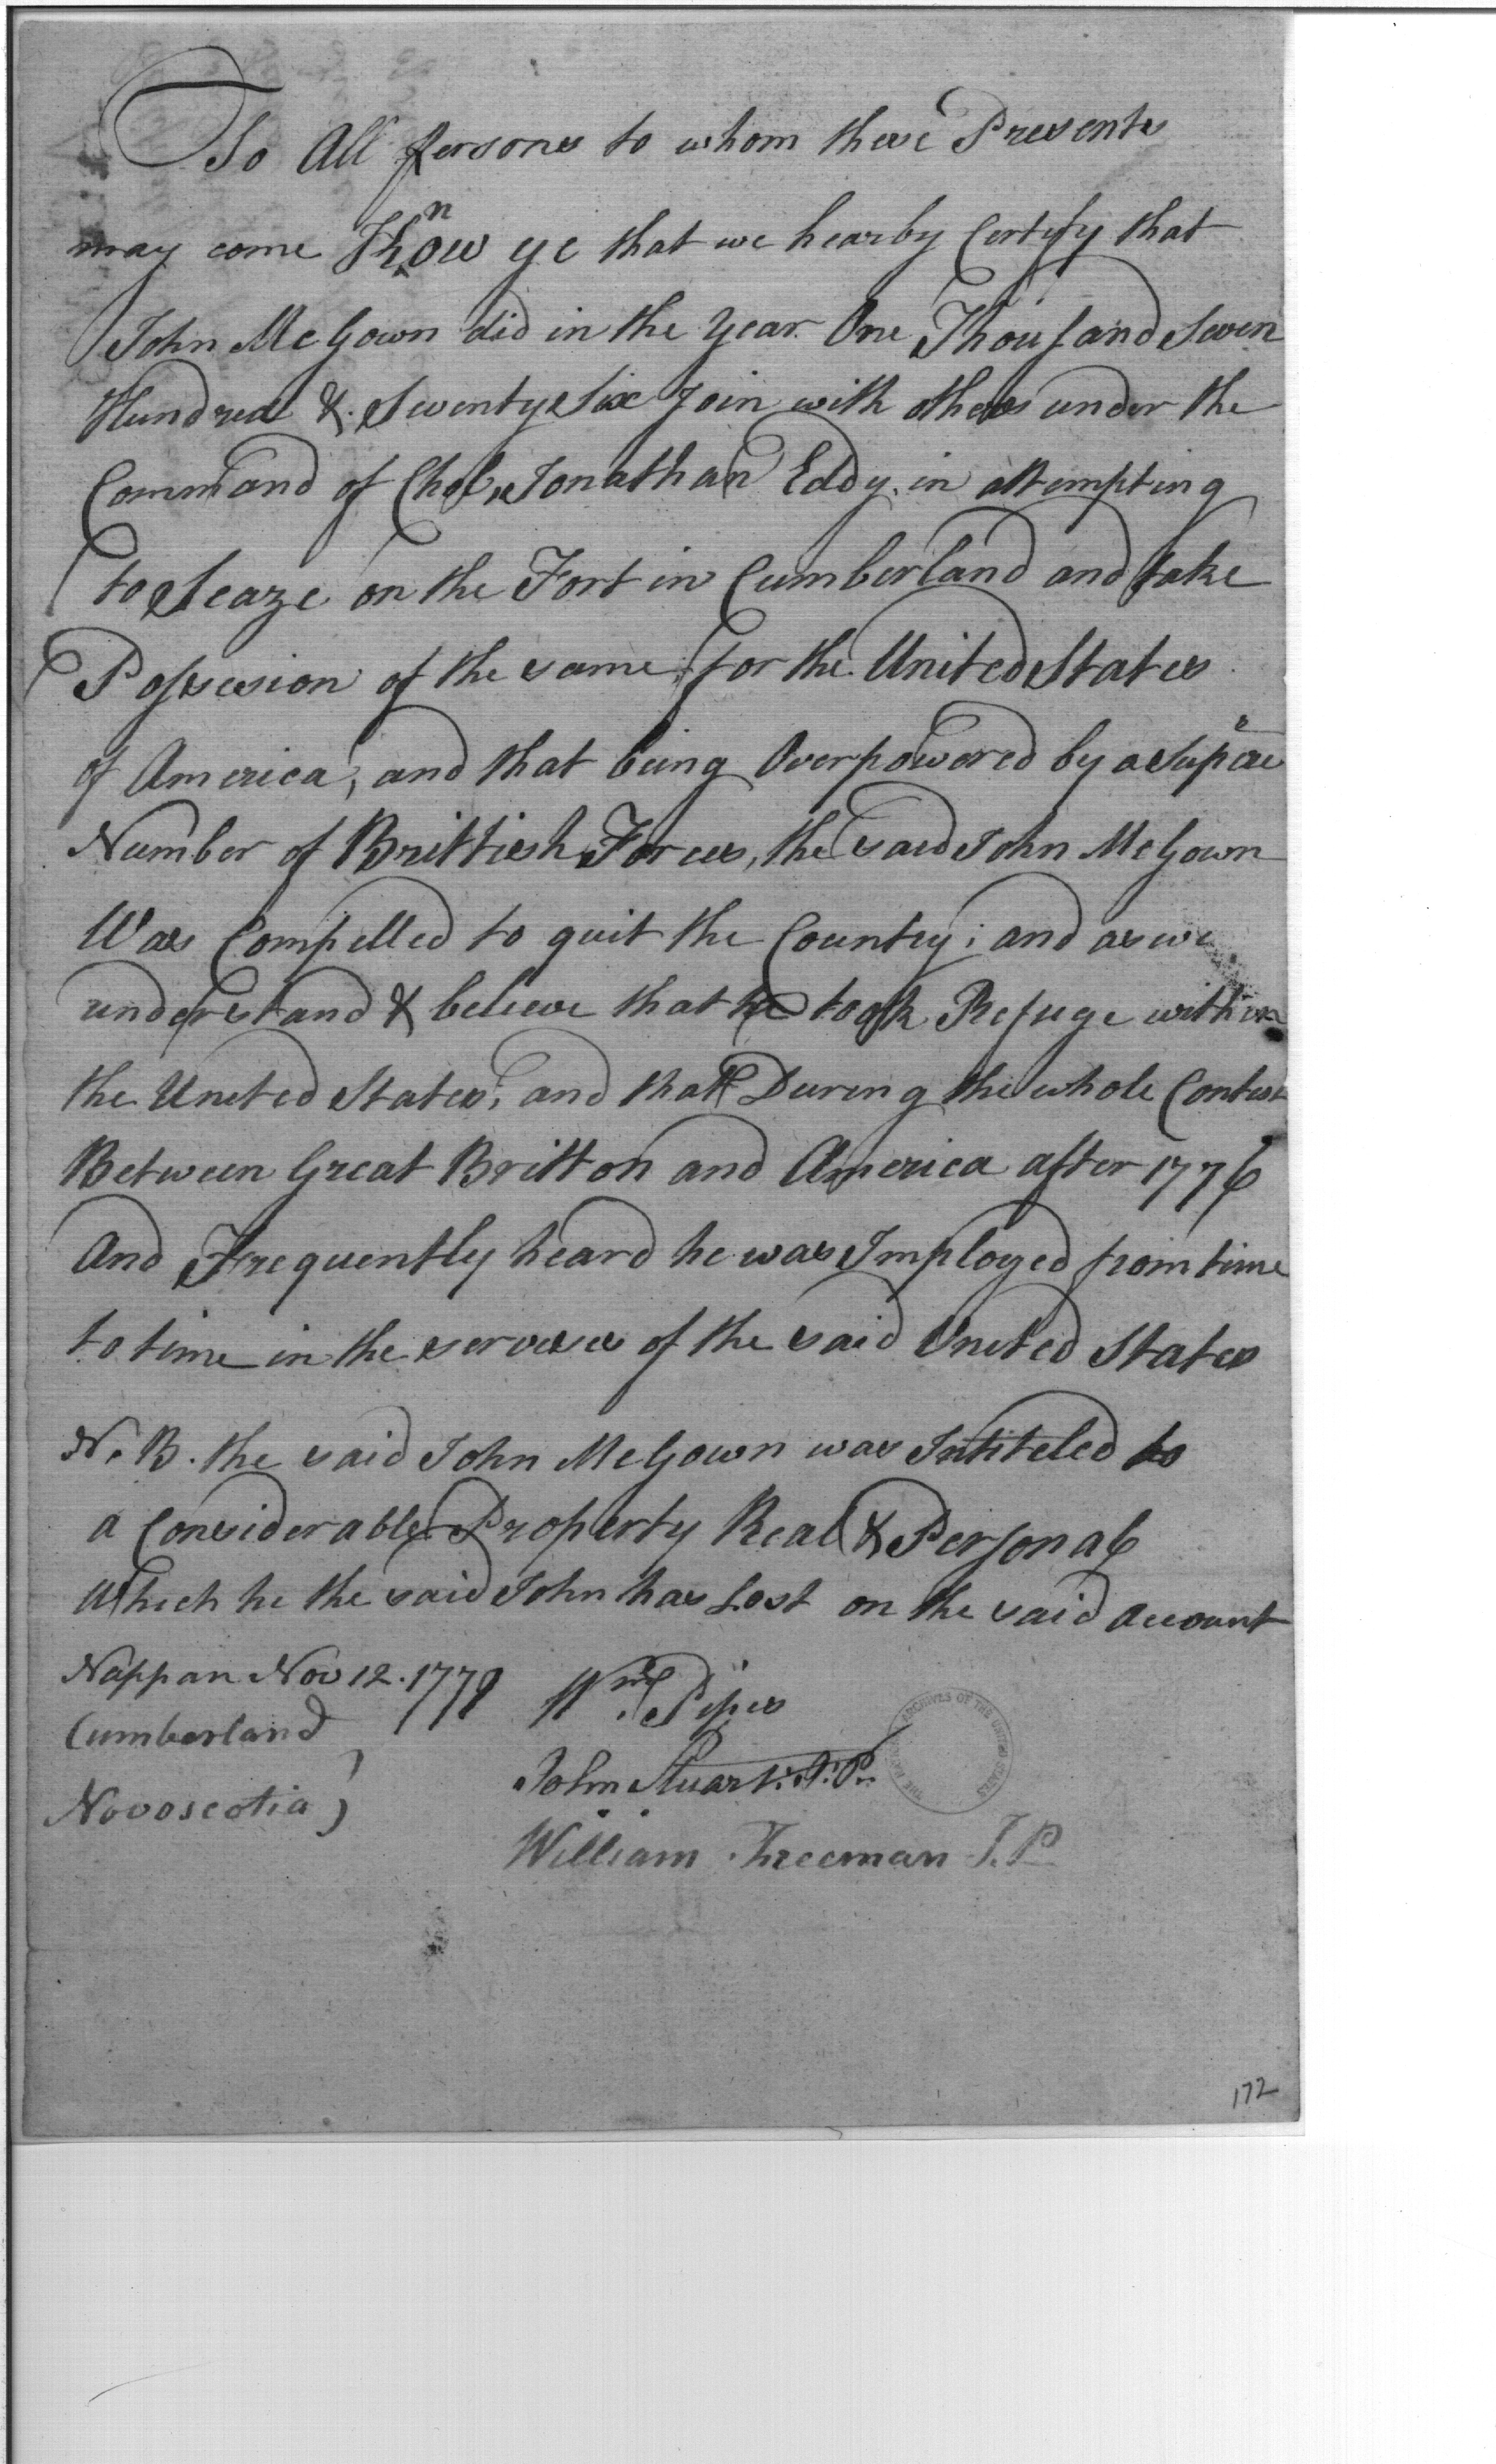 To All persones to whom these Presents
may come Know ye that we hearby Certify that
John McGown did in the year One Thousand Seven
Hundred & Seventy Six Join with others under the
Command of Chol. Jonathan Eddy in attempting
to Seaze on the Fort in Cumberland and take
Possesion of the same for the United States
of America, and that being Overpowered by a
Number of Brittish Forces, the said John McGown
Was Compelled to quit the Country; and as we
understand & believe that he took Refuge within
the United States, and that During the whole Contest
Between Great Britton and America after 1776
And Frequently heard he was Imployed from time
to time in the of the said United States
N. B. the said John McGown was Intiteled to
a Considerable Property Real & Personal
Which he the said John has Lost on the said Account
Nappan Nov 12.
Cumberland
Novoscotia
Wm. Pipes
John Stuart J.P.
William Freeman J.P
172